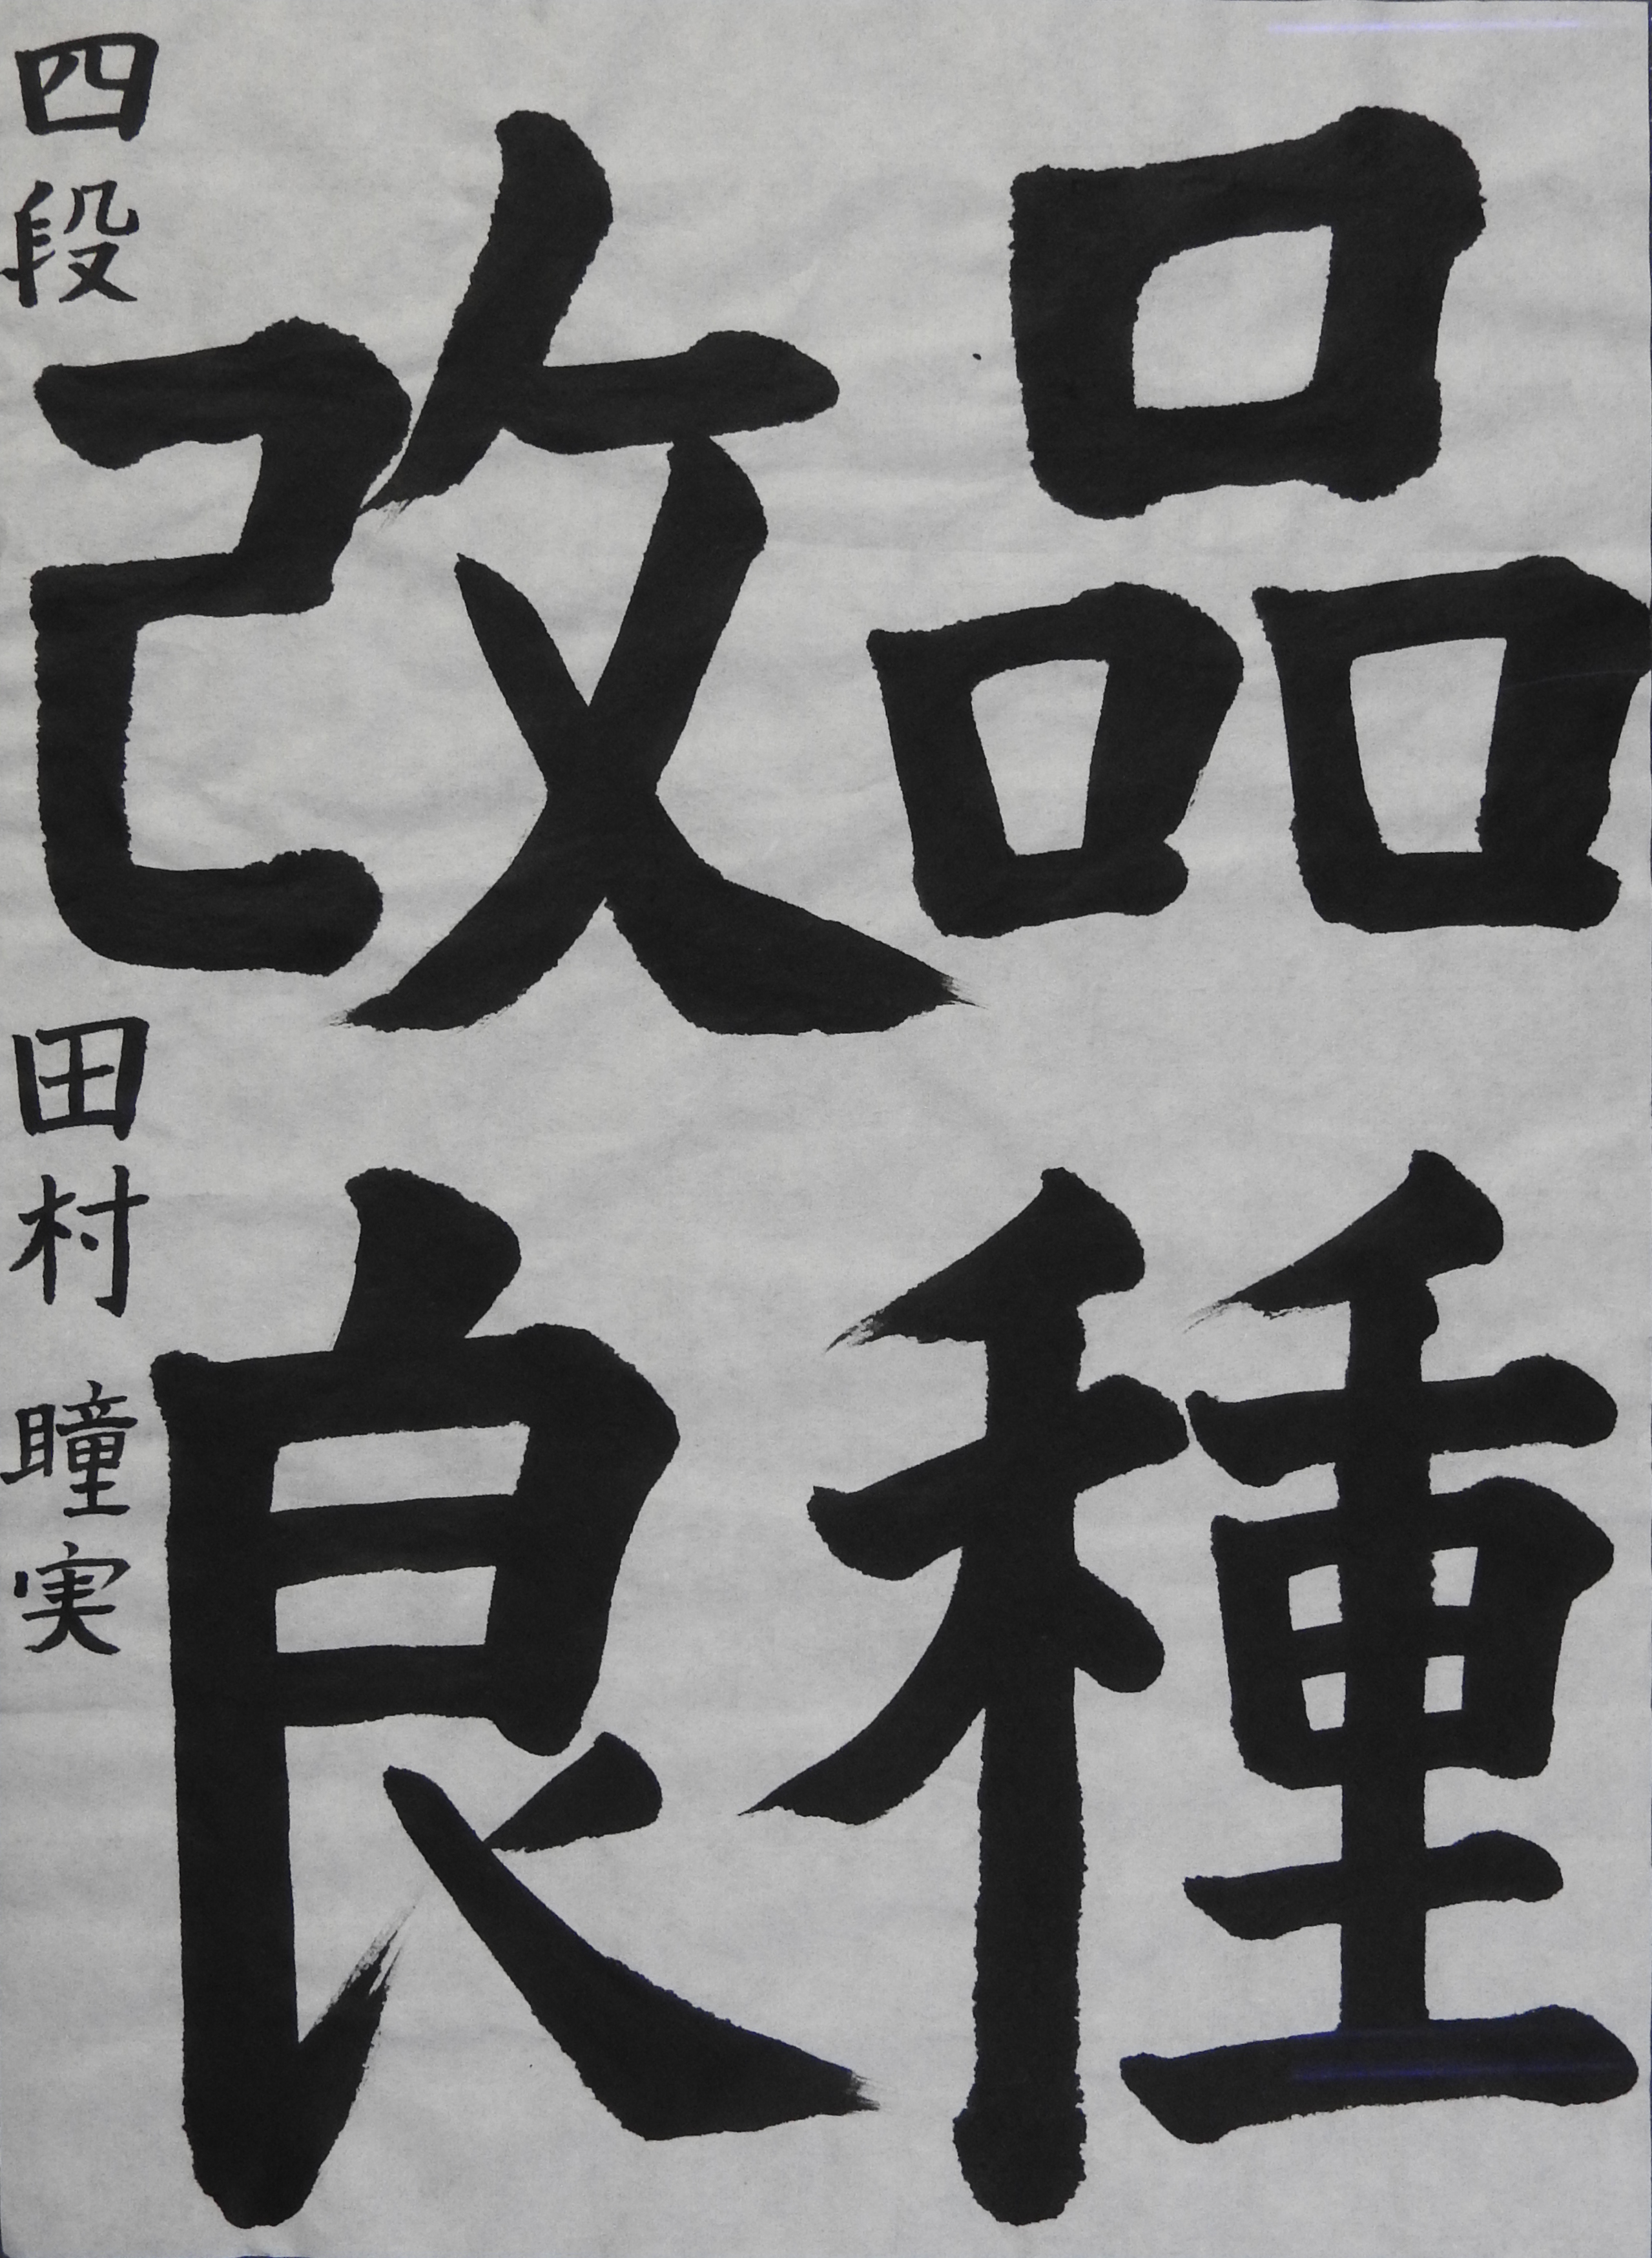 品種
改良
四段 田村 瞳実